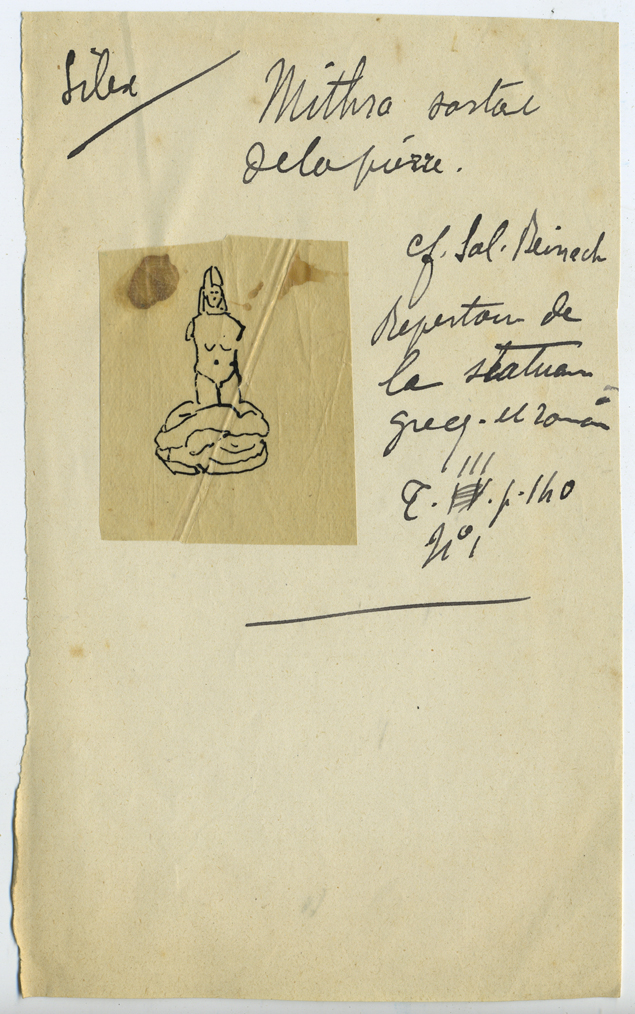 Silex
Mithra sortal
de la pierre.
cf. Sal. Reinach
Repertoire de
la statuaire
grecq. et romain
T. III. p. 140
N° 1